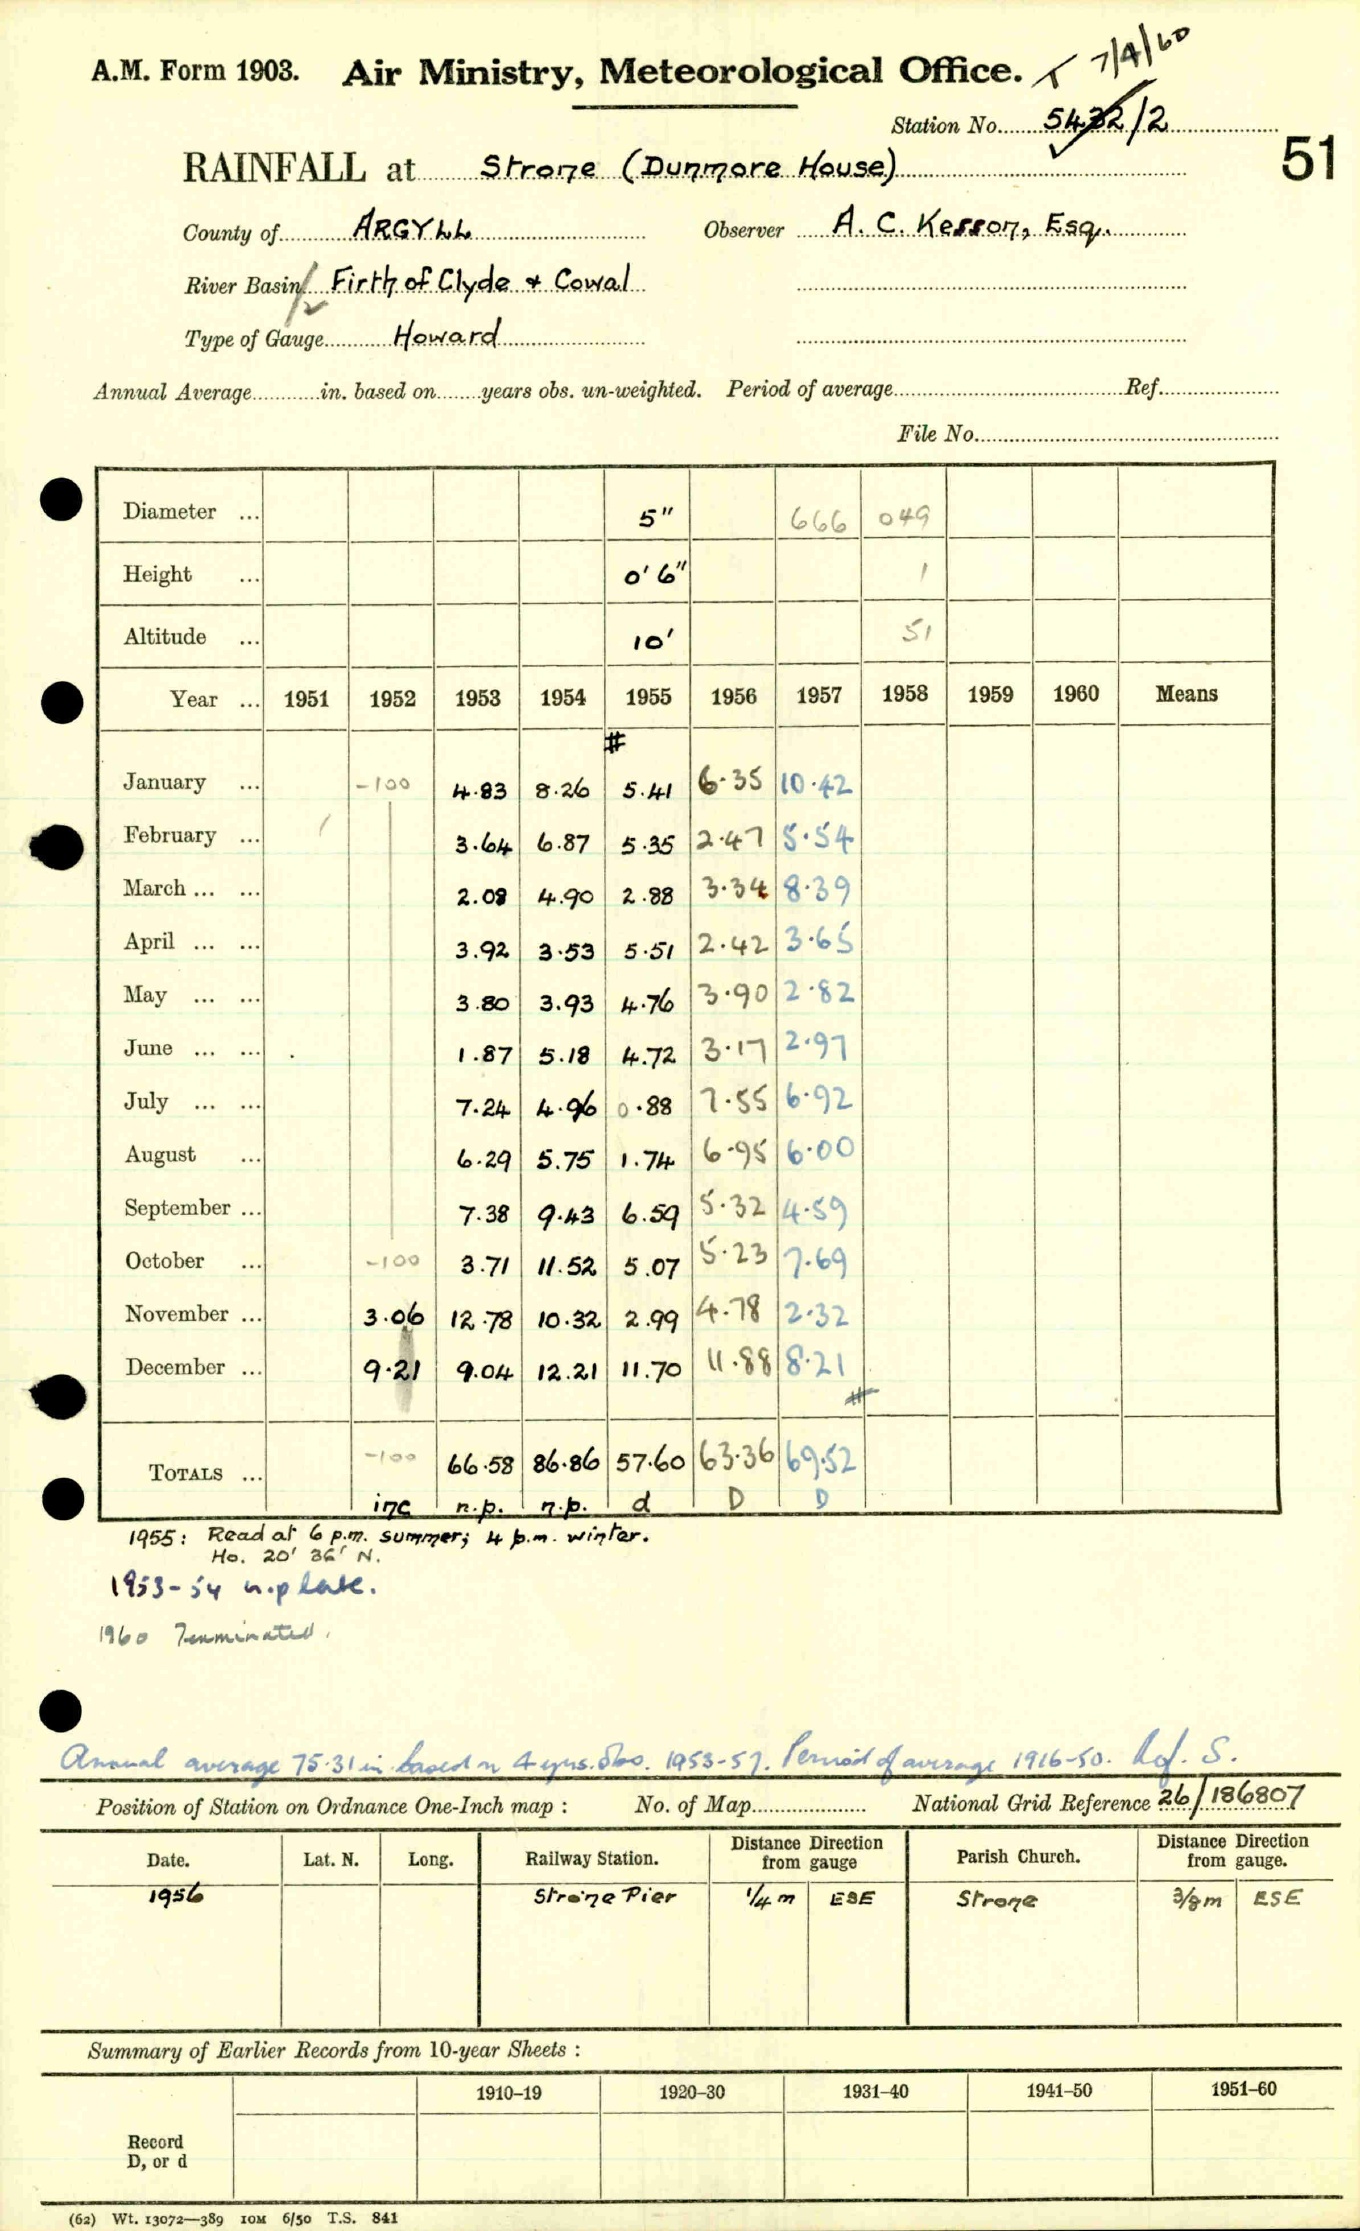 A.M. Form 1903. Air Ministry, Meteorological Office. T 7/4/60
Station No. 5432/2
RAINFALL at Strone (Dunmore House) 51
County of ARGYLL Observer A. C. Kesson, Esq.
River Basin Firth of Clyde + Cowal
Type of Gauge Howard
Annual Average in. based on years obs. un-weighted. Period of average Ref.
File No.
Diameter ... 5" 666 049
Height ... 0' 6" 1
Altitude ... 10' 51
Year ... 1951 1952 1953 1954 1955 1956 1957 1958 1959 1960 Means
#
January ... -100 4.83 8.26 5.41 6.35 10.42
February ... 3.64 6.87 5.35 2.47 5.54
March ... ... 2.08 4.90 2.88 3.34 8.39
April ... ... 3.92 3.53 5.51 2.42 3.65
May ... ... 3.80 3.93 4.76 3.90 2.82
June ... ... 1.87 5.18 4.72 3.17 2.97
July ... ... 7.24 4.96 0.88 7.55 6.92
August ... 6.29 5.75 1.74 6.95 6.00
September ... 7.38 9.43 6.59 5.32 4.59
October ... -100 3.71 11.52 5.07 5.23 7.69
November ... 3.06 12.78 10.32 2.99 4.78 2.32
December ... 9.21 9.04 12.21 11.70 11.88 8.21
#
TOTALS ... -100 66.58 86.86 57.60 63.36 69.52
inc n.p. n.p. d D D
1955: Read at 6 p.m. summer; 4 p.m. winter.
Ho. 20' 36' N.
1953-54 n.p late.
1960 Terminated.
Annual average 75.31 in based on 4 yrs. obs. 1953-57. Period of average 1916-50. Ref. S.
Position of Station on Ordnance One-Inch map : No. of Map National Grid Reference 26/186807
Date. Lat. N. Long. Railway Station. Distance Direction from gauge Parish Church. Distance Direction from gauge.
1956 Strone Pier 1/4 m ESE Strone 3/8 m ESE
Summary of Earlier Records from 10-year Sheets :
1910–19 1920–30 1931–40 1941–50 1951–60
Record
D, or d
(62) Wt. 13072—389 10M 6/50 T.S. 841